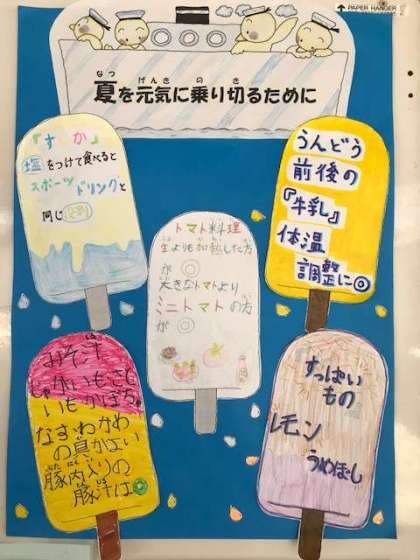 PAPER HANGER
なつ げんき の き
夏を元気に乗り切るために
『すいか』
塩をつけて食べると
スポーツドリンクと
同じ
うんどう
前後の
『牛乳』
体温
調整に◎
トマト料理
生よりも加熱した方
が◎
大きなトマトより
ミニトマトの方
が◎
みそ汁
じゃがいもさと
いもかぼちゃ
なすわかめ
の具がよい
豚肉入りの
豚汁は
すっぱい
もの
レモン
うめぼし